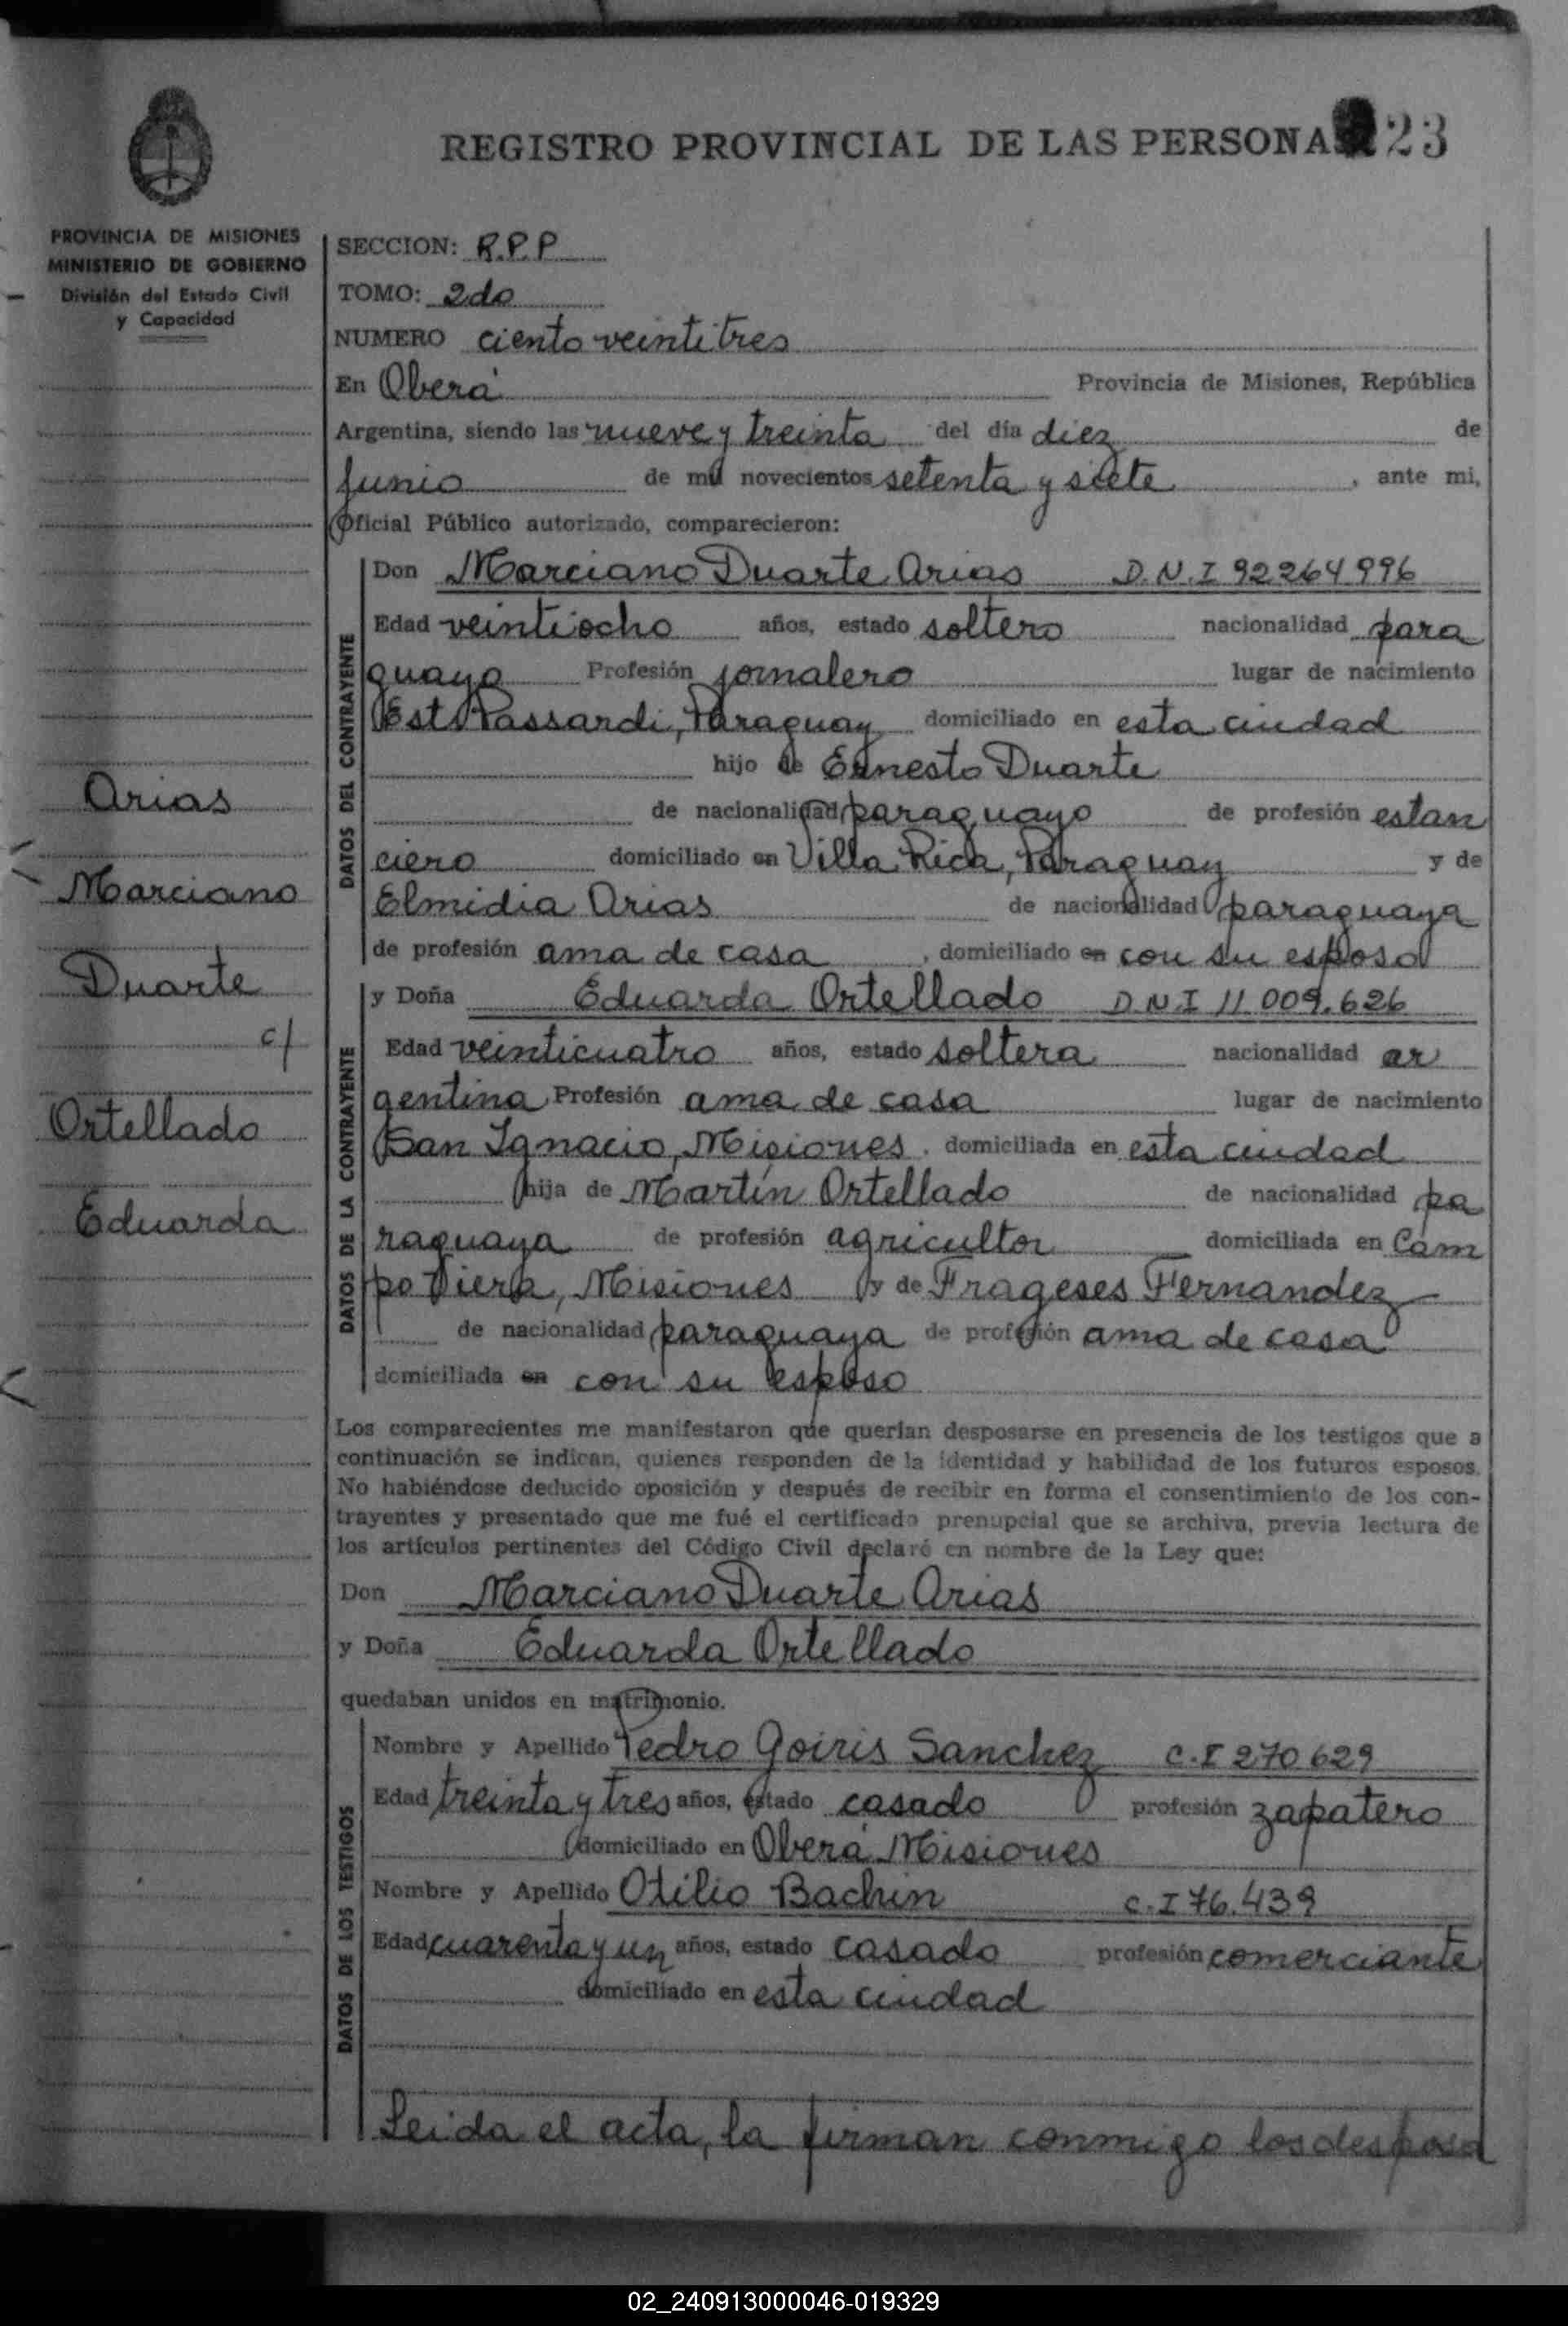 REGISTRO PROVINCIAL DE LAS PERSONA 23
PROVINCIA DE MISIONES
MINISTERIO DE GOBIERNO
División del Estado Civil
y Capacidad
Arias
Marciano
Duarte
c/
Ortellado
Eduarda
SECCION: R.P.P
TOMO: 2do
NUMERO ciento veintitres
En Oberá Provincia de Misiones, República
Argentina, siendo las nueve y treinta del día diez de
Junio de mil novecientos setenta y siete, ante mi,
Oficial Público autorizado, comparecieron:
DATOS DEL CONTRAYENTE
Don Marciano Duarte Arias D.N.I 92264996
Edad veintiocho años, estado soltero nacionalidad para
guayo Profesión jornalero lugar de nacimiento
Paraguay domiciliado en esta ciudad
hijo de Ernesto Duarte
de nacionalidad paraguayo de profesión estan
ciero domiciliado en Villa Rica, Paraguay y de
Elmidia Arias de nacionalidad paraguaya
de profesión ama de casa, domiciliado en con su esposo
DATOS DE LA CONTRAYENTE
y Doña Eduarda Ortellado D.N.I 11.009.626
Edad veinticuatro años, estado soltera nacionalidad ar
gentina Profesión ama de casa lugar de nacimiento
San Ignacio, Misiones, domiciliada en esta ciudad
hija de Martín Ortellado de nacionalidad pa
raguaya de profesión agricultor domiciliada en Cam
po Viera, Misiones y de Frageses Fernandez
de nacionalidad paraguaya de profesión ama de casa
domiciliada en con su esposo
Los comparecientes me manifestaron que querían desposarse en presencia de los testigos que a
continuación se indican, quienes responden de la identidad y habilidad de los futuros esposos.
No habiéndose deducido oposición y después de recibir en forma el consentimiento de los con-
trayentes y presentado que me fué el certificado prenupcial que se archiva, previa lectura de
los artículos pertinentes del Código Civil declaré en nombre de la Ley que:
Don Marciano Duarte Arias
y Doña Eduarda Ortellado
quedaban unidos en matrimonio.
DATOS DE LOS TESTIGOS
Nombre y Apellido Pedro Goiris Sanchez C.I 270629
Edad treinta y tres años, estado casado profesión zapatero
domiciliado en Oberá Misiones
Nombre y Apellido Otilio Bachin C.I 76.439
Edad cuarenta y un años, estado casado profesión comerciante
domiciliado en esta ciudad
Leida el acta, la firman conmigo los desposa
02_240913000046-019329